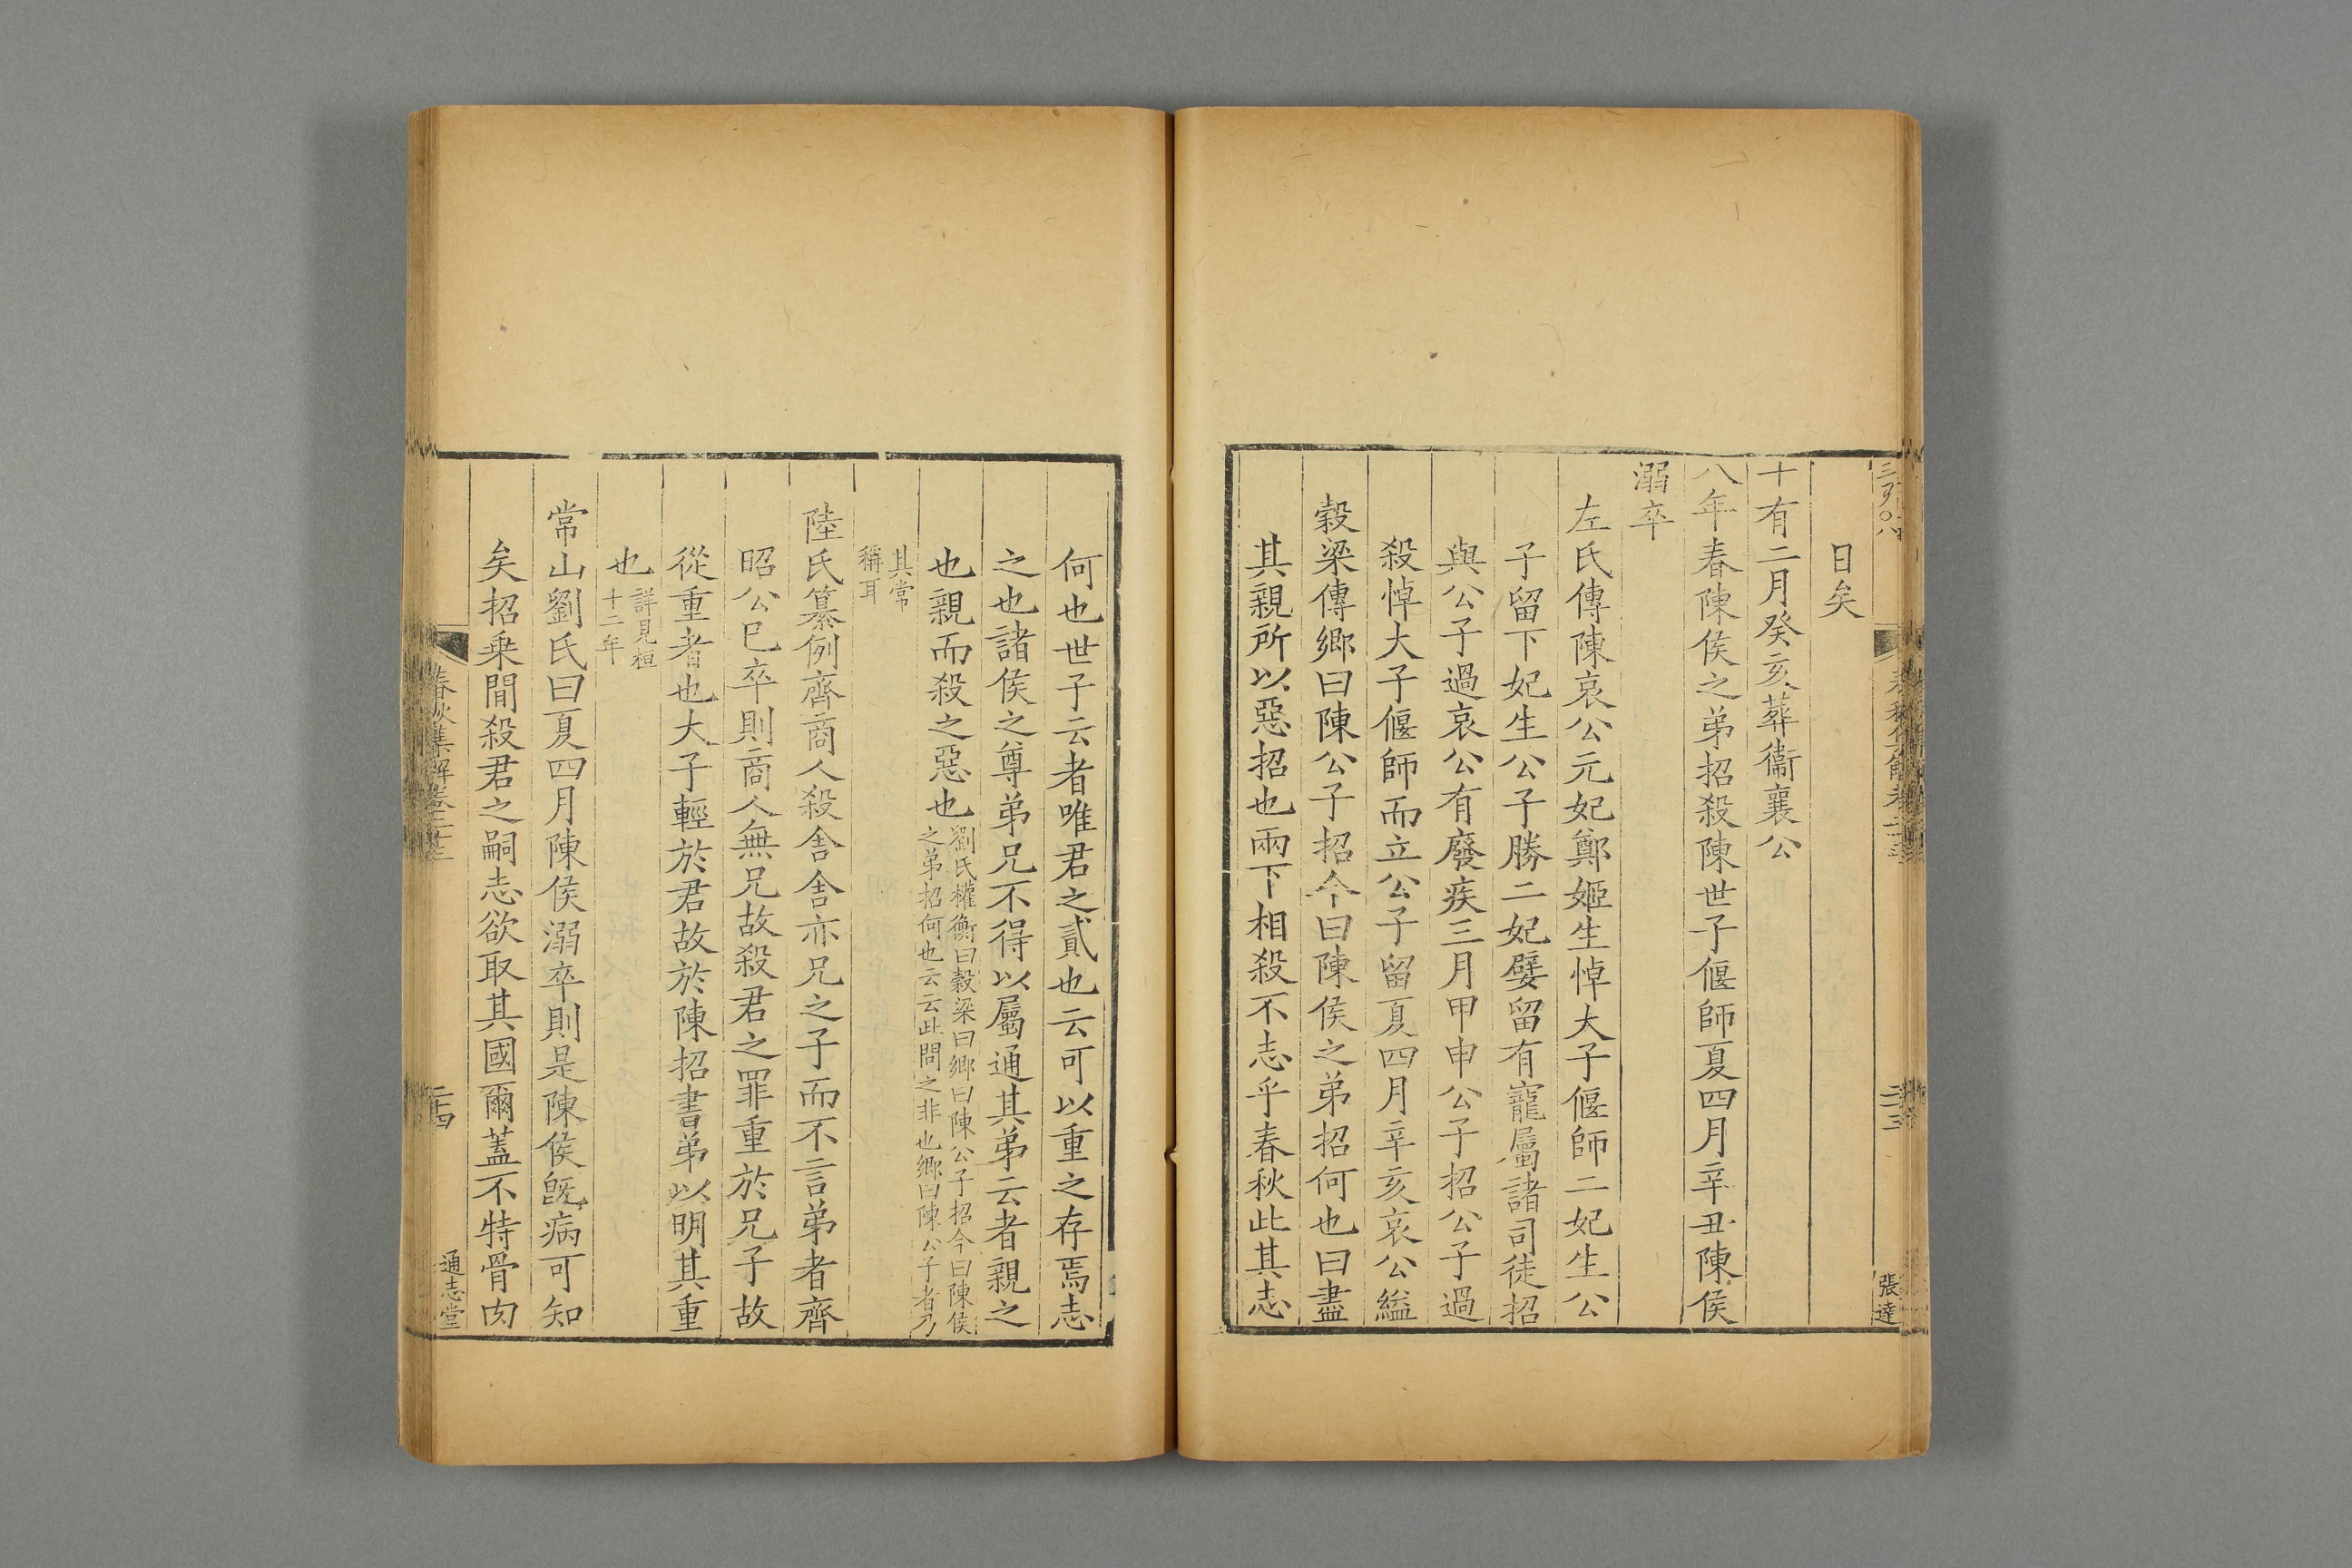 日矣
十有二月癸亥葬衞襄公
八年春陳侯之弟招殺陳世子偃師夏四月辛丑陳侯
溺卒
左氏傳陳哀公元妃鄭姬生悼大子偃師二妃生公
子留下妃生公子勝二妃嬖留有寵屬諸司徒招
與公子過哀公有廢疾三月甲申公子招公子過
殺悼大子偃師而立公子留夏四月辛亥哀公縊
穀梁傳鄉曰陳公子招今曰陳侯之弟招何也曰盡
其親所以惡招也兩下相殺不志乎春秋此其志
二十三
張達
何也世子云者唯君之貳也云可以重之存焉志
之也諸侯之尊弟兄不得以屬通其弟云者親之
也親而殺之惡也劉氏權衡曰穀梁曰鄉曰陳公子招今曰陳侯
之弟招何也云云此問之非也鄉曰陳公子者乃
其常
稱耳
陸氏纂例齊商人殺舍舍亦兄之子而不言弟者齊
昭公已卒則商人無兄故殺君之罪重於兄子故
從重者也大子輕於君故於陳招書弟以明其重
也詳見桓
十二年
常山劉氏曰夏四月陳侯溺卒則是陳侯旣病可知
矣招乗閒殺君之嗣志欲取其國爾蓋不特骨肉
春秋集解卷二十三
二十四
通志堂